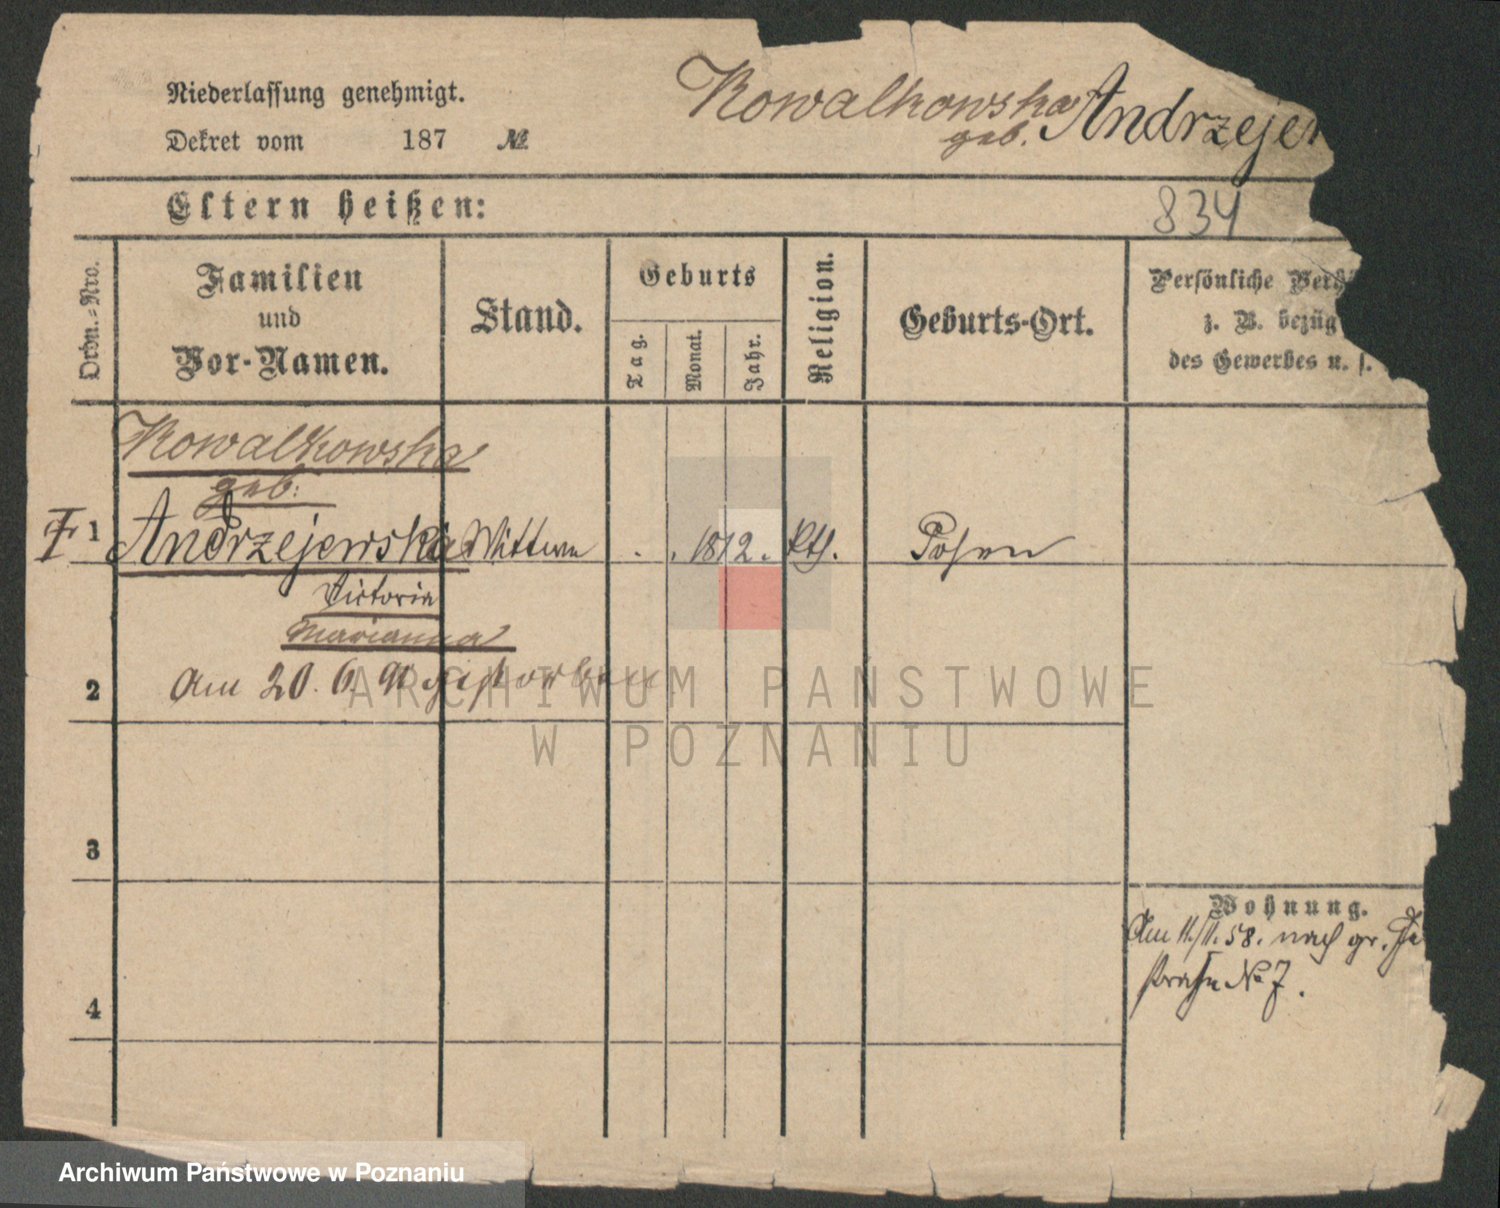 Niederlassung genehmigt.
Dekret vom 187 №
Kowalkowska
geb. Andrzejew
Eltern heißen:
834
Ordn.=Nro.
Familien
und
Vor-Namen.
Stand.
Geburts
Tag.
Monat.
Jahr.
Religion.
Geburts-Ort.
Persönliche Verhä
z. B. bezüg
des Gewerbes u. s.
Kowalkowska
geb.
1 Andrzejewska Wittwe . . 1812. kth. Posen
Victoria
Marianna
2 Am 20. 6. 91 gestorben
3
4
Wohnung.
Am 11./11. 58. nach gr.
straße No 7.
ARCHIWUM PAŃSTWOWE
W POZNANIU
Archiwum Państwowe w Poznaniu